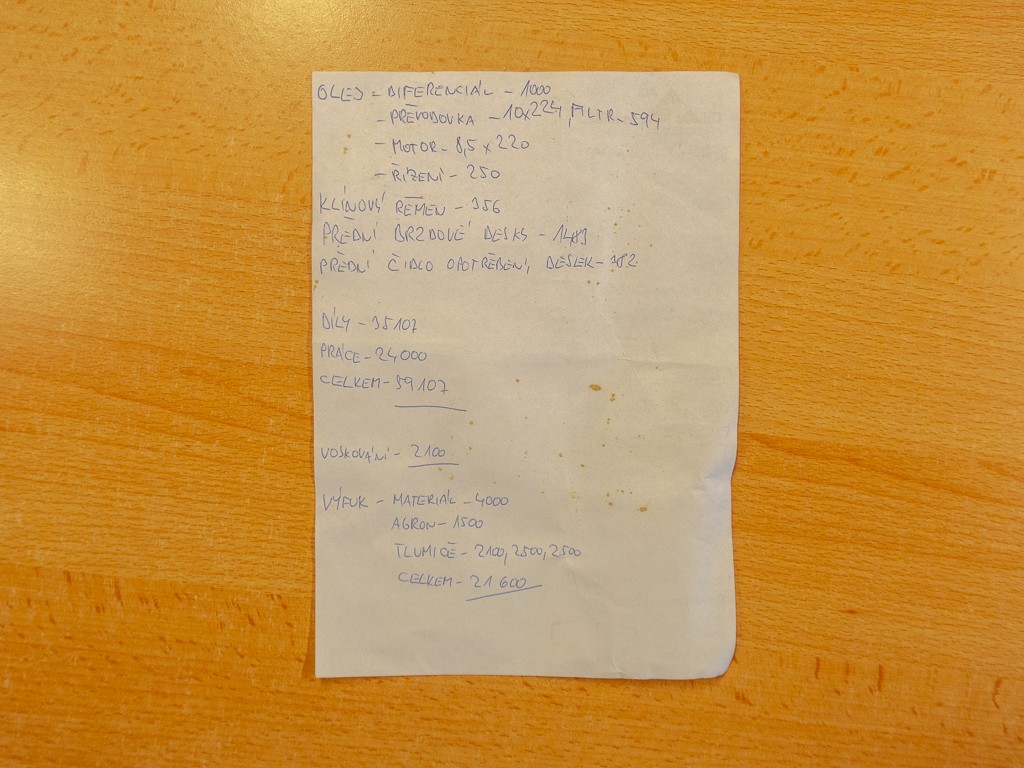 OLEJ - DIFERENCIÁL - 1000
- PŘEVODOVKA - 10x224, FILTR - 594
- MOTOR - 8,5 x 220
- ŘÍZENÍ - 250
KLÍNOVÝ ŘEMEN - 356
PŘEDNÍ BRZDOVÉ DESKY - 1489
PŘEDNÍ ČIDLO OPOTŘEBENÍ, DESEK - 382
DÍLY - 35107
PRÁCE - 24000
CELKEM - 59107
VOSKOVÁNÍ - 2100
VÝFUK - MATERIÁL - 4000
AGRON - 1500
TLUMIČE - 2100, 2500, 2500
CELKEM - 21 600